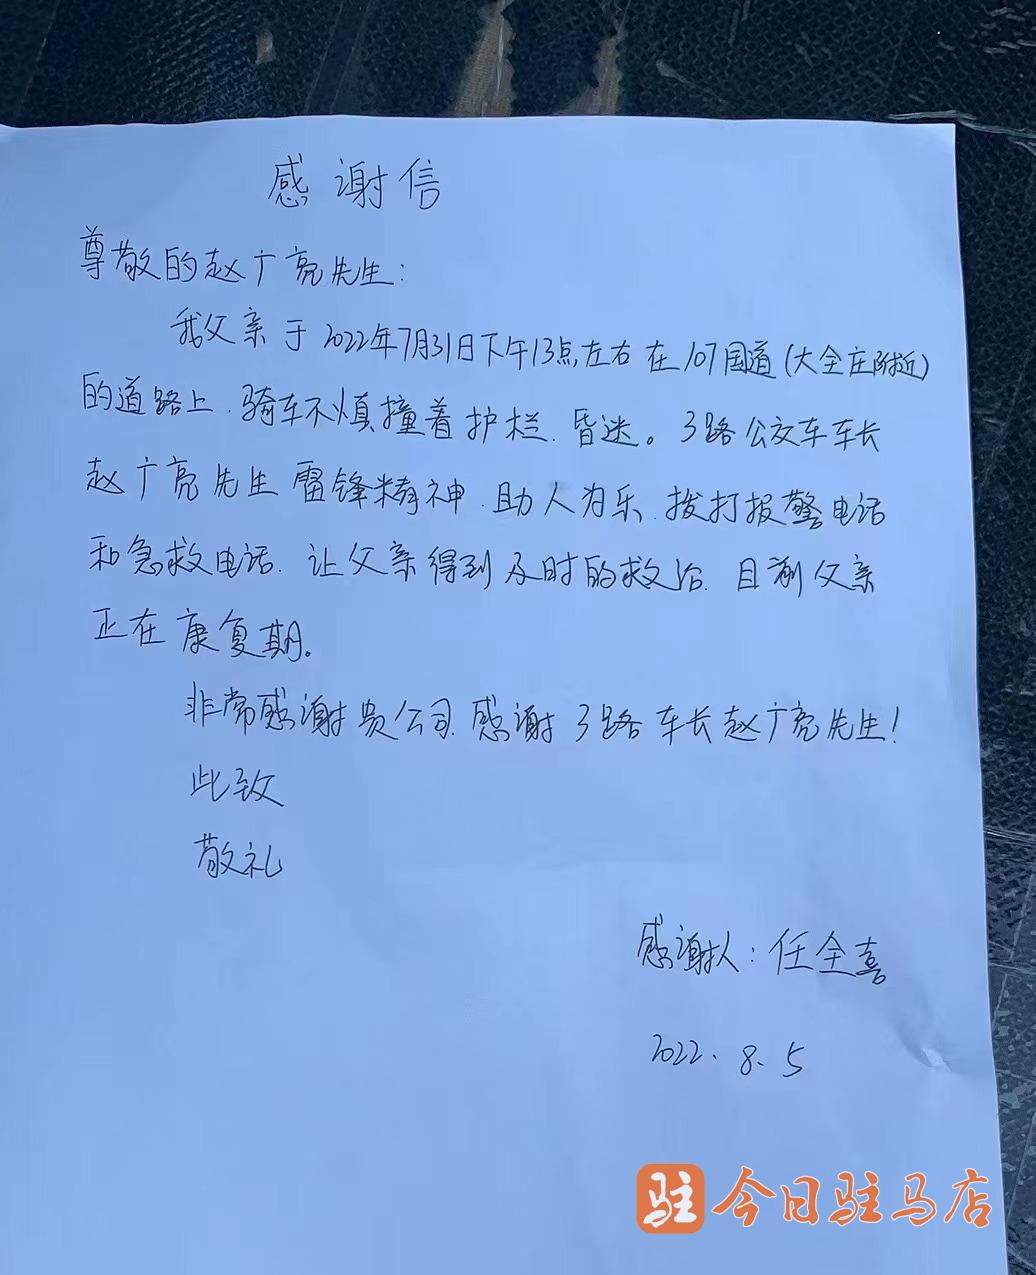 感谢信
尊敬的赵广亮先生：
我父亲于2022年7月31日下午13点左右在107国道(大全庄附近)
的道路上.骑车不慎撞着护栏.昏迷。3路公交车车长
赵广亮先生雷锋精神.助人为乐.拨打报警电话
和急救电话.让父亲得到及时的救治.目前父亲
正在康复期。
非常感谢贵公司.感谢3路车长赵广亮先生!
此致
敬礼
感谢人：任全喜
2022.8.5
驻 今日驻马店